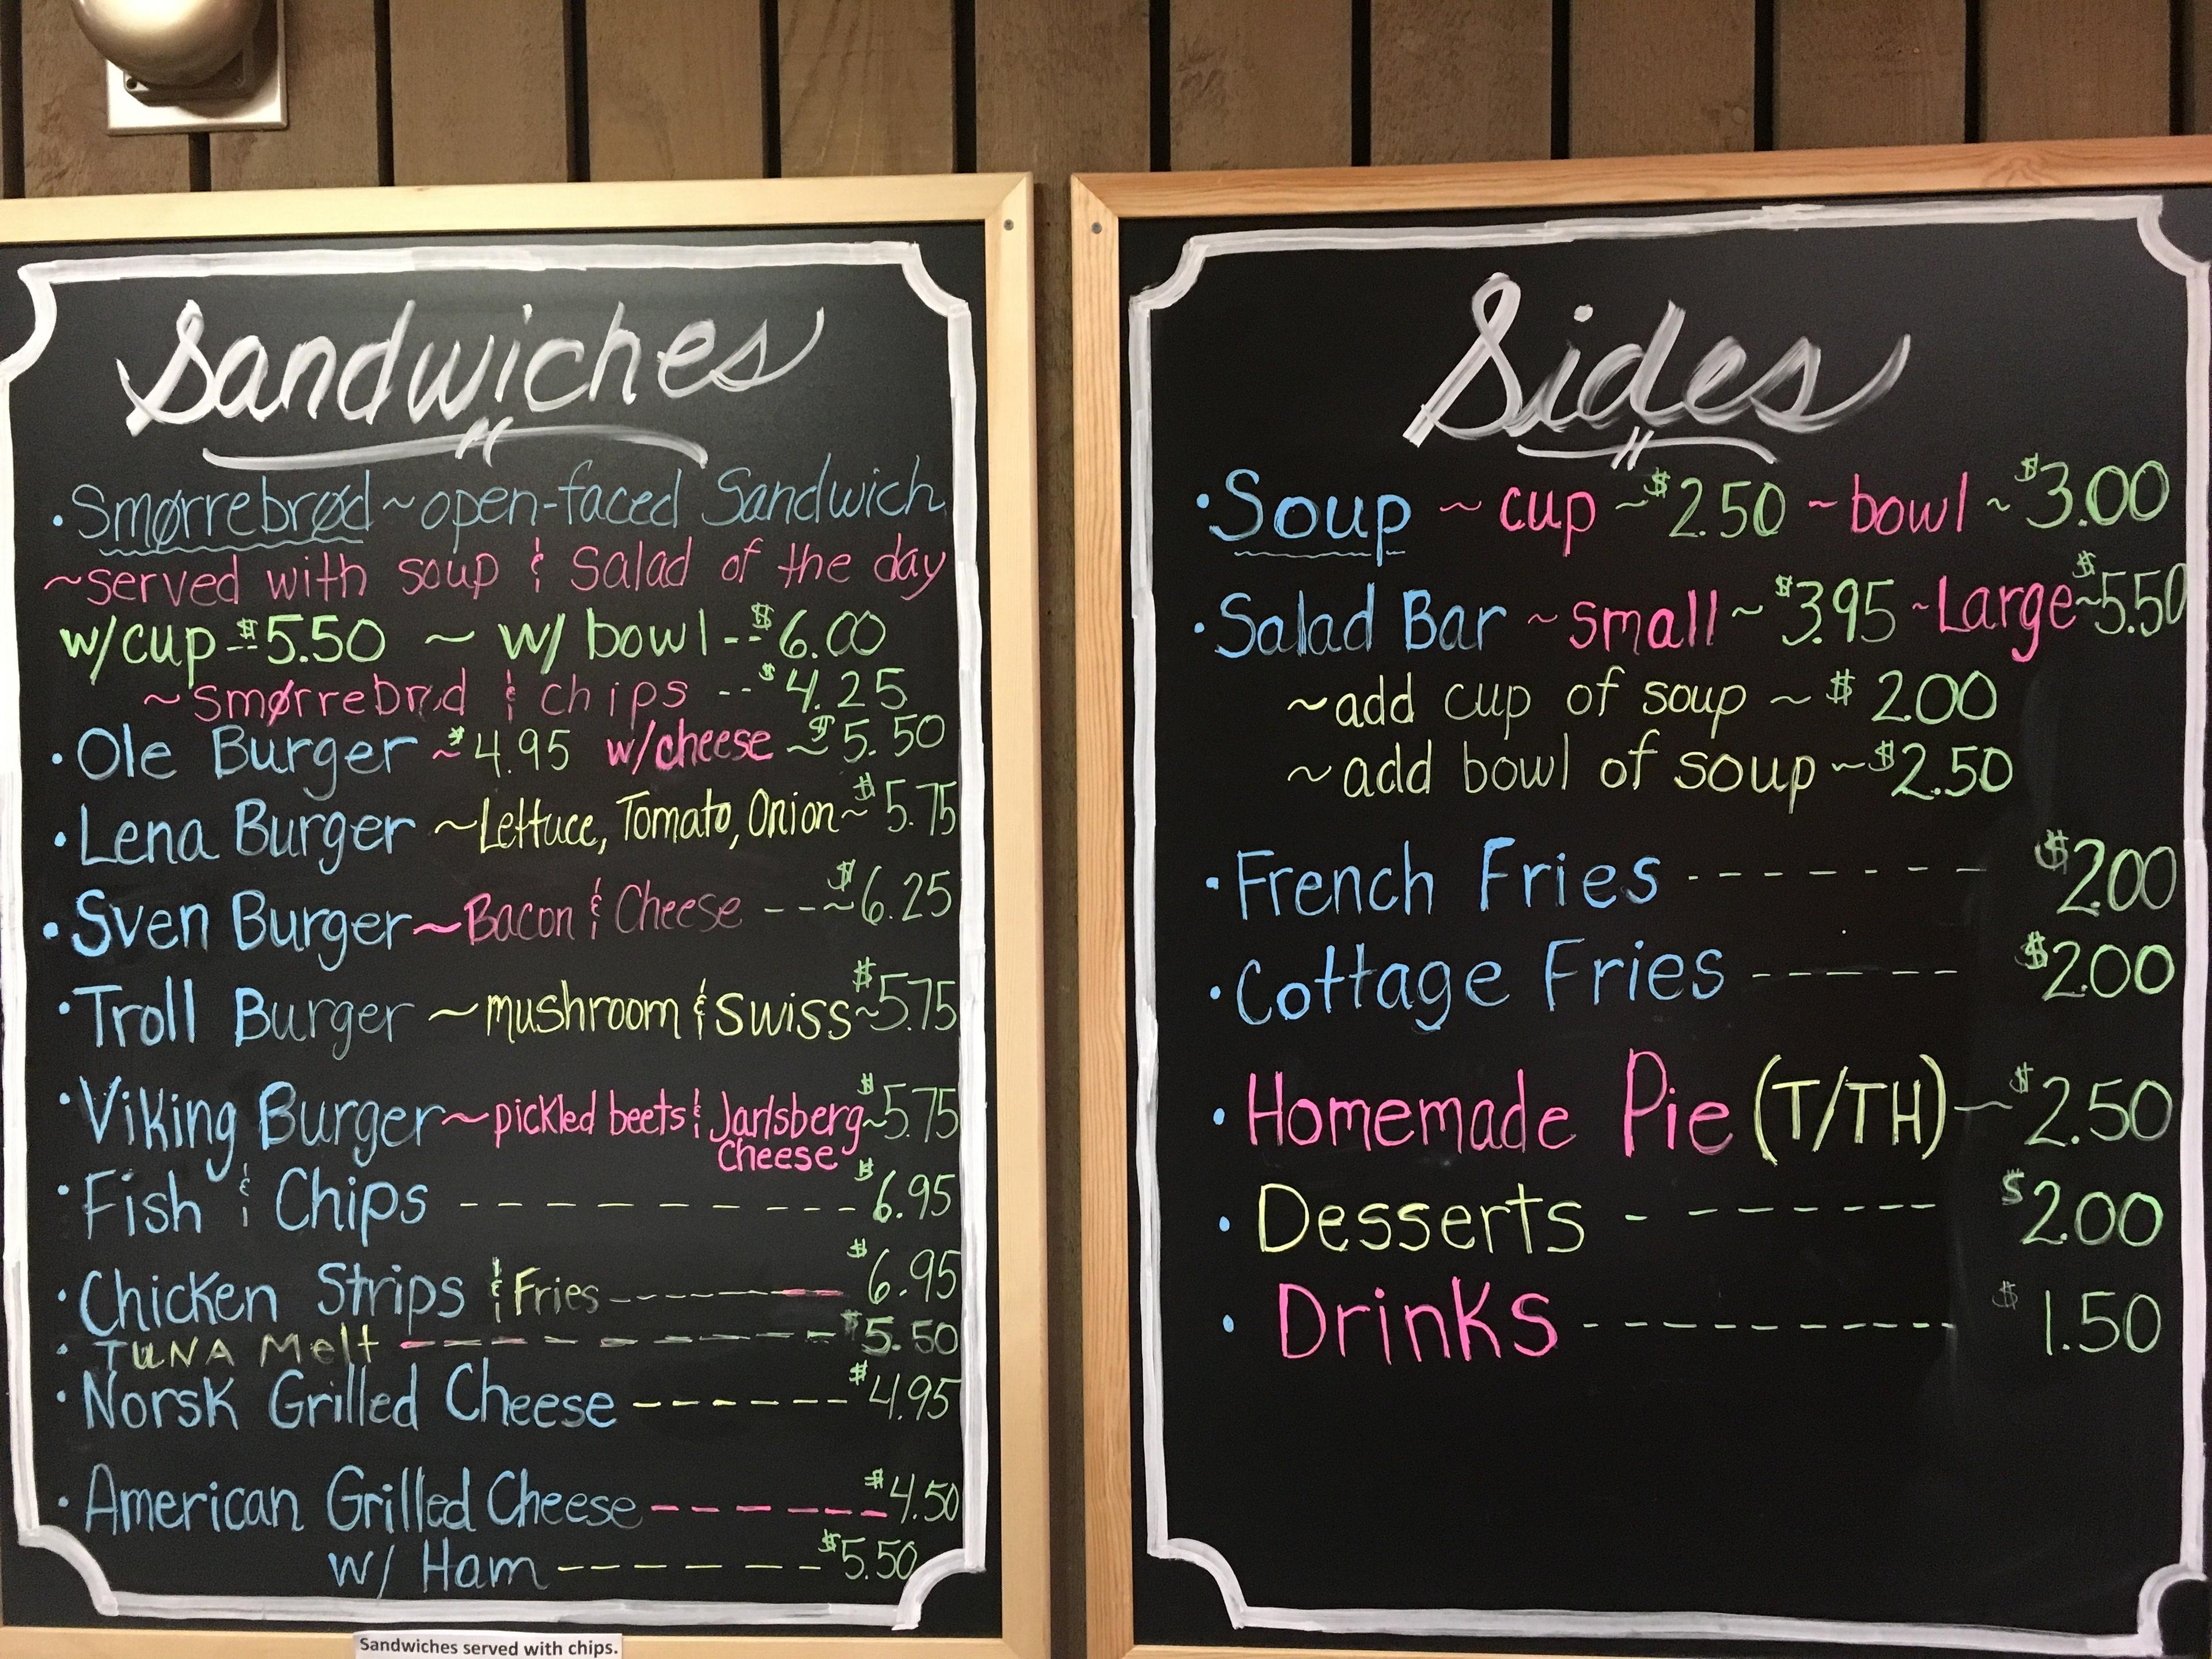 Sandwiches
• Smørrebrød ~ open-faced Sandwich
~served with soup & Salad of the day
w/cup--$5.50 ~ w/ bowl--$6.00
~smørrebrød & chips --$4.25
• Ole Burger ~$4.95 w/cheese ~$5.50
• Lena Burger ~Lettuce, Tomato, Onion~$5.75
• Sven Burger~Bacon & Cheese ---~$6.25
• Troll Burger ~mushroom & Swiss~$5.75
• Viking Burger~pickled beets & Jarlsberg~$5.75
Cheese
• Fish & Chips ---------- $6.95
• Chicken Strips & Fries ------- $6.95
• TUNA Melt --------- $5.50
• Norsk Grilled Cheese ------ $4.95
• American Grilled Cheese ------ $4.50
w/ Ham ------ $5.50
Sandwiches served with chips.
Sides
• Soup ~ cup ~$2.50 ~bowl ~$3.00
• Salad Bar ~small~$3.95 ~Large~$5.50
~add cup of soup ~$2.00
~add bowl of soup ~$2.50
• French Fries ------- $2.00
• Cottage Fries ----- $2.00
• Homemade Pie (T/TH)—~$2.50
• Desserts ------- $2.00
• Drinks ----------- $1.50